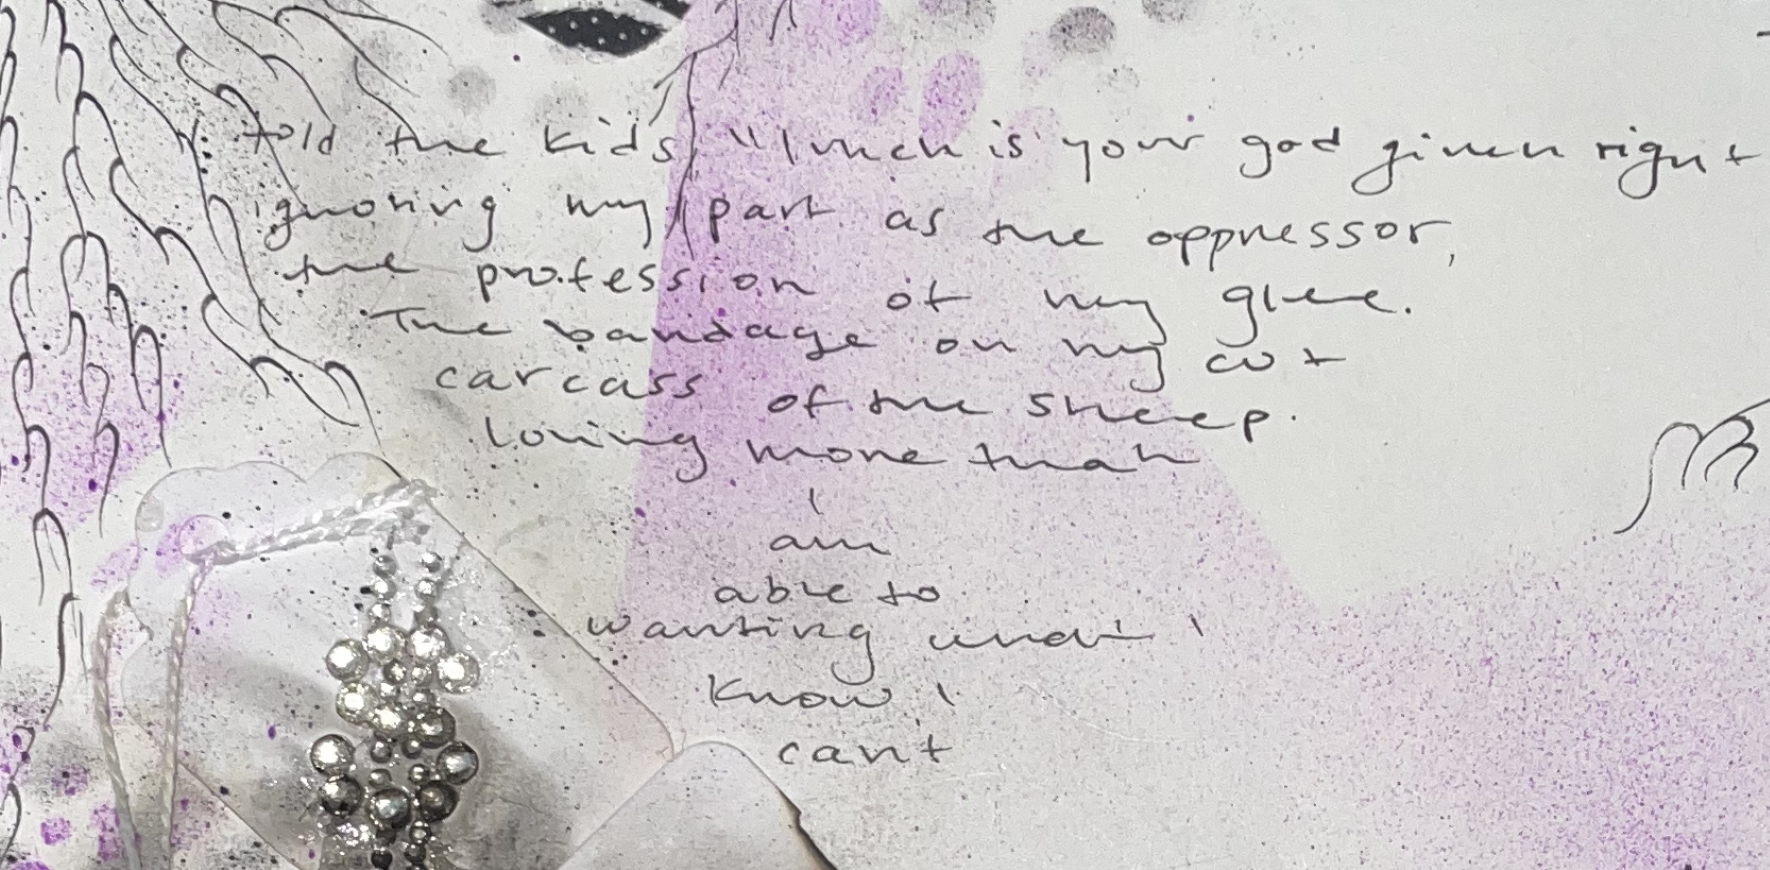 I told the kids, "lunch is your god given right
ignoring my part as the oppressor,
the profession of my glee.
The bandage on my cut
carcass of the sheep.
loving more than
I
am
able to
wanting what I
know I
cant